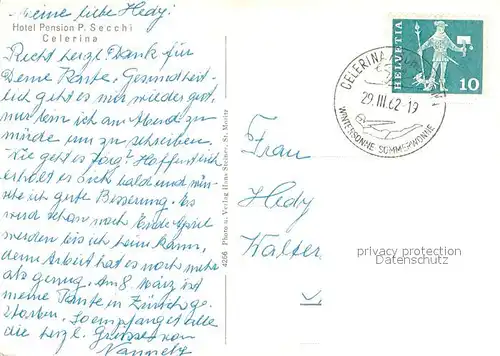 Meine liebe Hedy!
Hotel Pension P. Secchi
Celerina
Recht herzl. Dank für
Deine Karte. Gesundheit-
lich geht es mir wieder gut,
nur bin ich am Abend zu
müde um zu schreiben.
Wie geht es Jörg? Hoffentlich
erholt es sich bald und wün-
sche ich gute Besserung. Es
wird schon noch Ende April
werden bis ich heim kann,
denn Arbeit hat es noch mehr
als genug. Am 8. März ist
meine Tante in Zürich ge-
storben. So empfanget alle
die herzl. Grüsse von
4266 Photo u. Verlag Hans Steiner, St. Moritz
HELVETIA
10
CELERINA
29.III.62-19
WINTERSONNE SOMMERWONNE
Frau
Hedy
Walter
privacy protection
Datenschutz